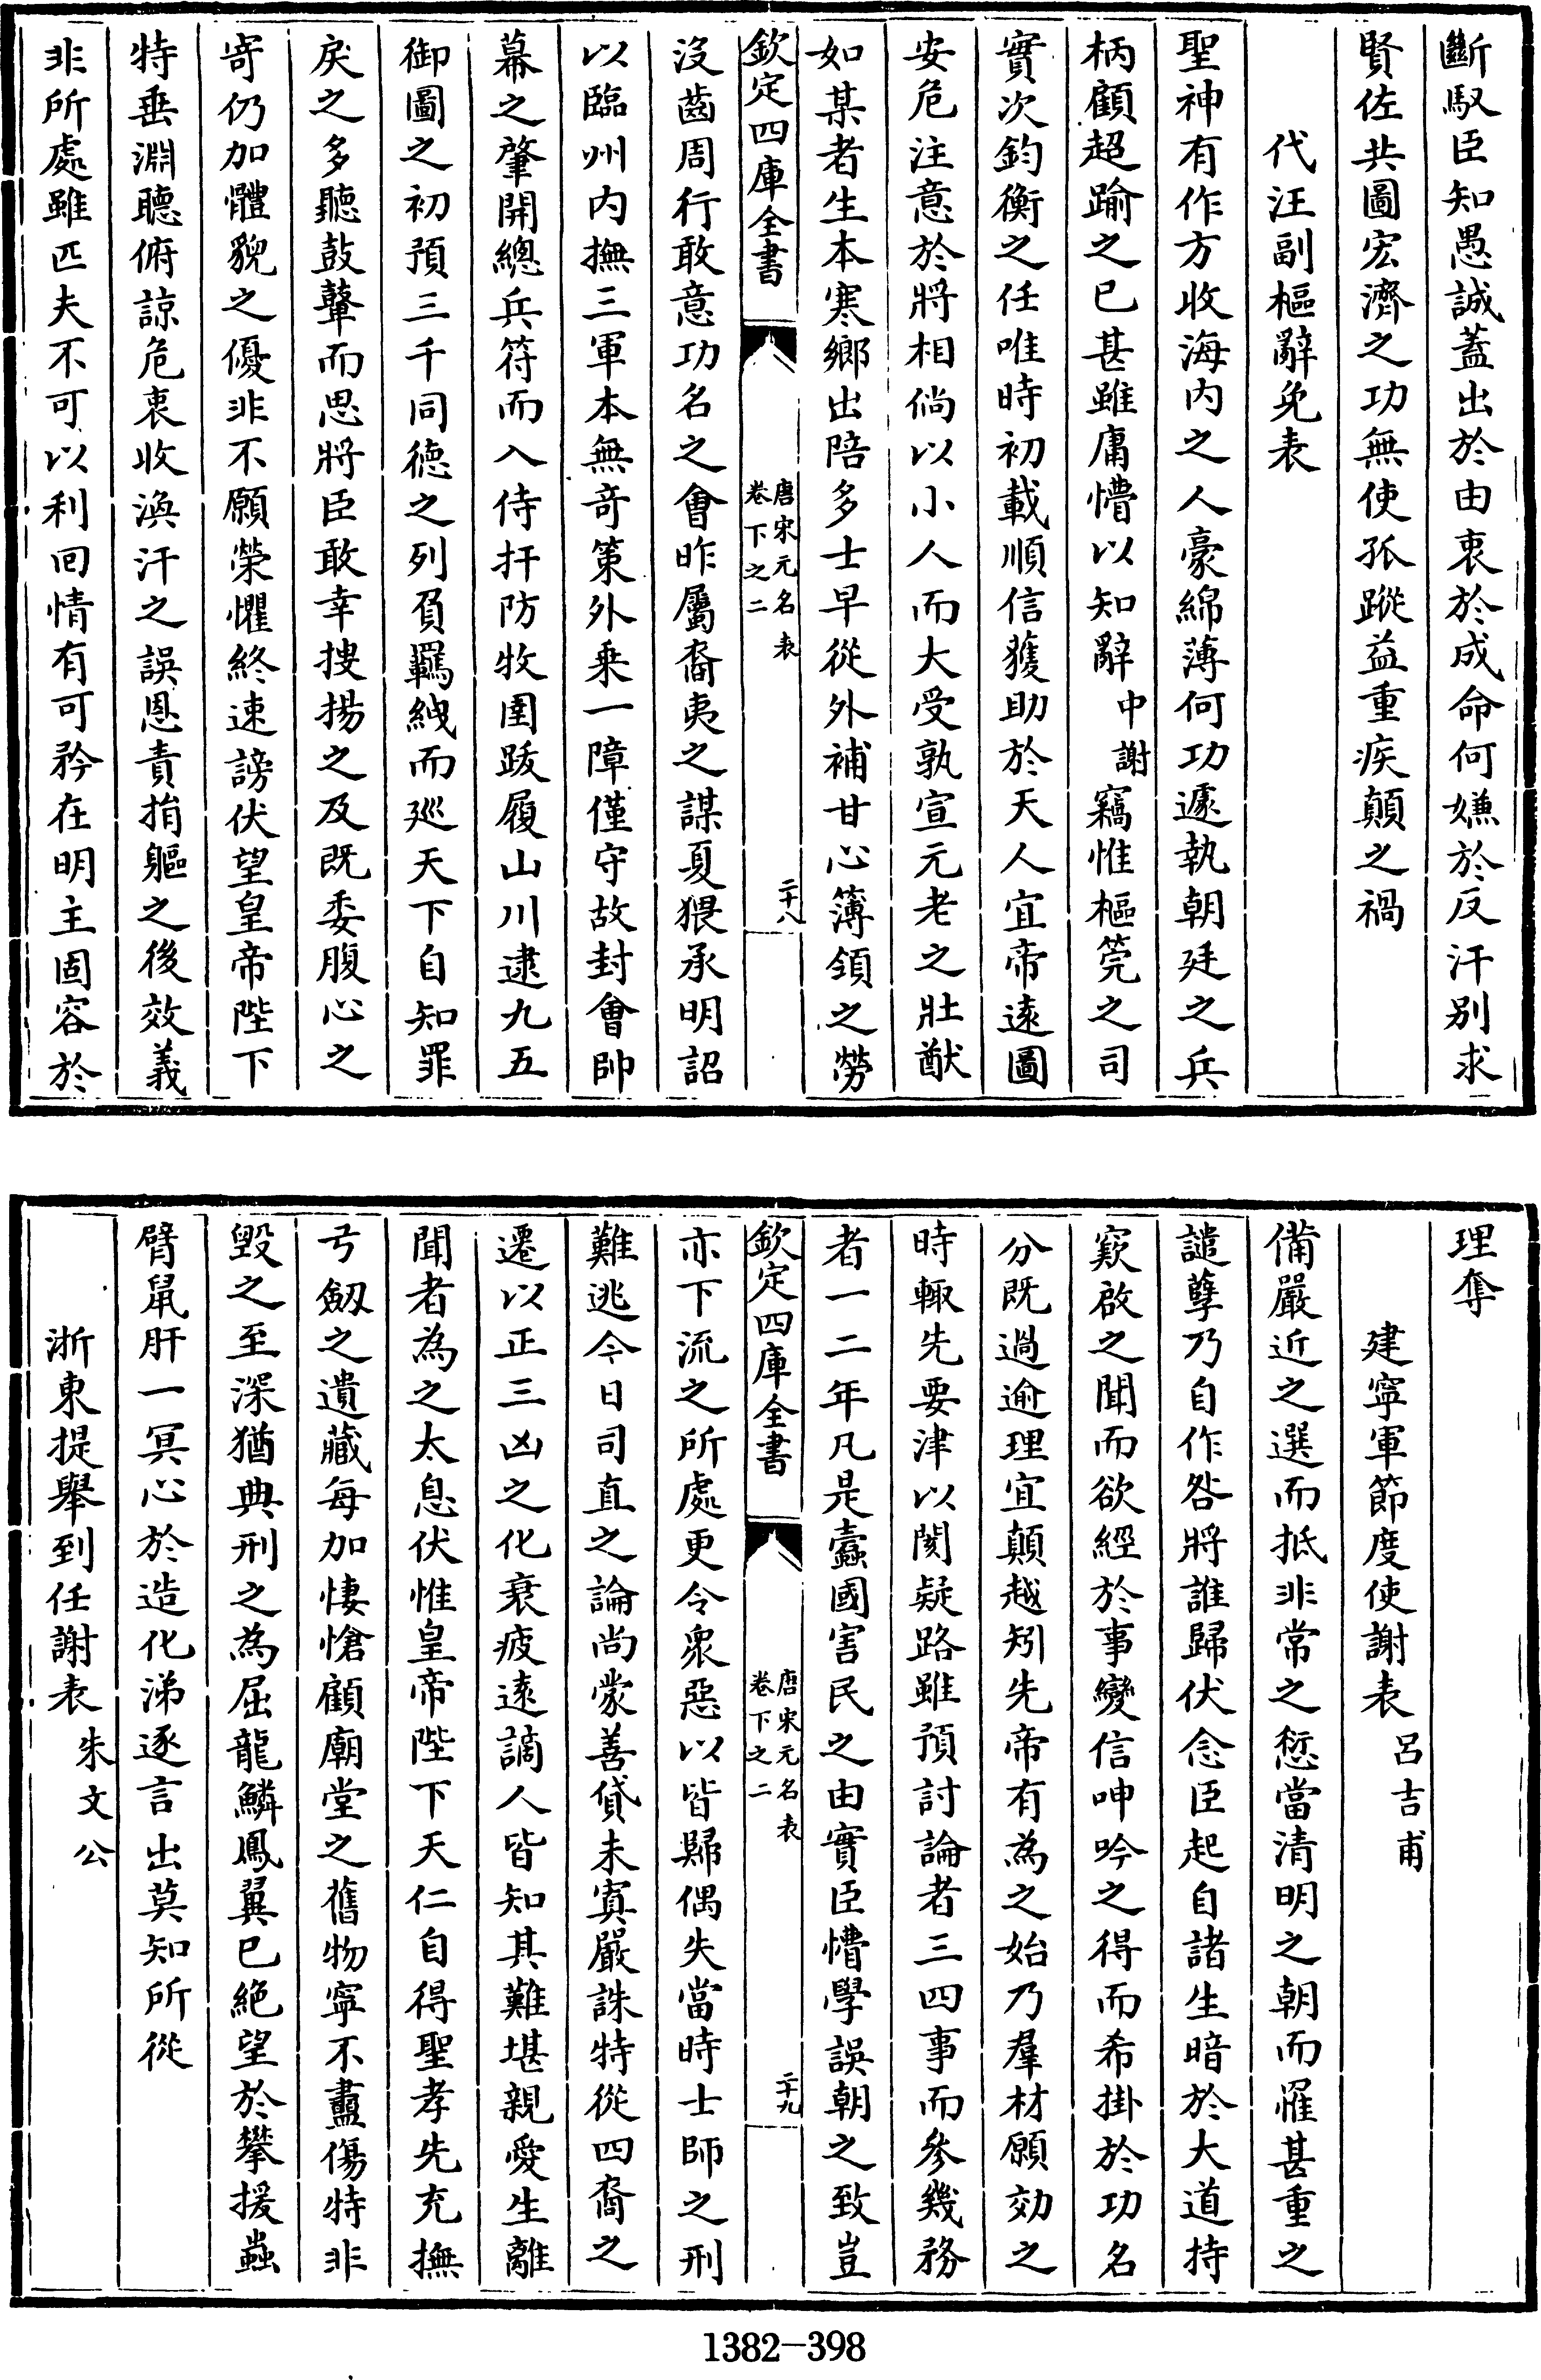 斷馭臣知愚誠蓋出於由衷於成命何嫌於反汗别求
賢佐共圖宏濟之功無使孤蹤益重疾顛之禍
代汪副樞辭免表
聖神有作方收海内之人豪綿薄何功遽執朝廷之兵
柄顧超踰之已甚雖庸懵以知辭中謝竊惟樞筦之司
實次鈞衡之任唯時初載順信獲助於天人宜帝遠圖
安危注意於將相倘以小人而大受孰宣元老之壯猷
如某者生本寒鄉出陪多士早從外補甘心簿領之勞
欽定四庫全書
唐宋元名表
卷下之二
二十八
沒齒周行敢意功名之會昨屬裔夷之謀夏猥承明詔
以臨州内撫三軍本無奇策外乗一障僅守故封會帥
幕之肇開總兵符而入侍扞防牧圉跋履山川逮九五
御圖之初預三千同徳之列負羈絏而廵天下自知罪
戾之多聽鼓鼙而思將臣敢幸捜揚之及既委腹心之
寄仍加體貌之優非不願榮懼終速謗伏望皇帝陛下
特垂淵聽俯諒危衷收渙汗之誤恩責捐軀之後效義
非所處雖匹夫不可以利回情有可矜在明主固容於
理奪
建寧軍節度使謝表 呂吉甫
備嚴近之選而抵非常之愆當清明之朝而罹甚重之
譴孽乃自作咎將誰歸伏念臣起自諸生暗於大道持
窾啟之聞而欲經於事變信呻吟之得而希掛於功名
分既過逾理宜顛越矧先帝有為之始乃羣材願効之
時輙先要津以閡疑路雖預討論者三四事而參幾務
者一二年凡是蠧國害民之由實臣懵學誤朝之致豈
欽定四庫全書
唐宋元名表
卷下之二
二十九
亦下流之所處更令衆惡以皆歸偶失當時士師之刑
難逃今日司直之論尚蒙善貸未寘嚴誅特從四裔之
遷以正三凶之化衰疲逺謫人皆知其難堪親愛生離
聞者為之太息伏惟皇帝陛下天仁自得聖孝先充撫
弓劒之遺藏每加悽愴顧廟堂之舊物寧不盡傷特非
毀之至深猶典刑之為屈龍鱗鳳翼已絕望於攀援蟲
臂鼠肝一冥心於造化涕逐言出莫知所從
浙東提舉到任謝表 朱文公
1382-398